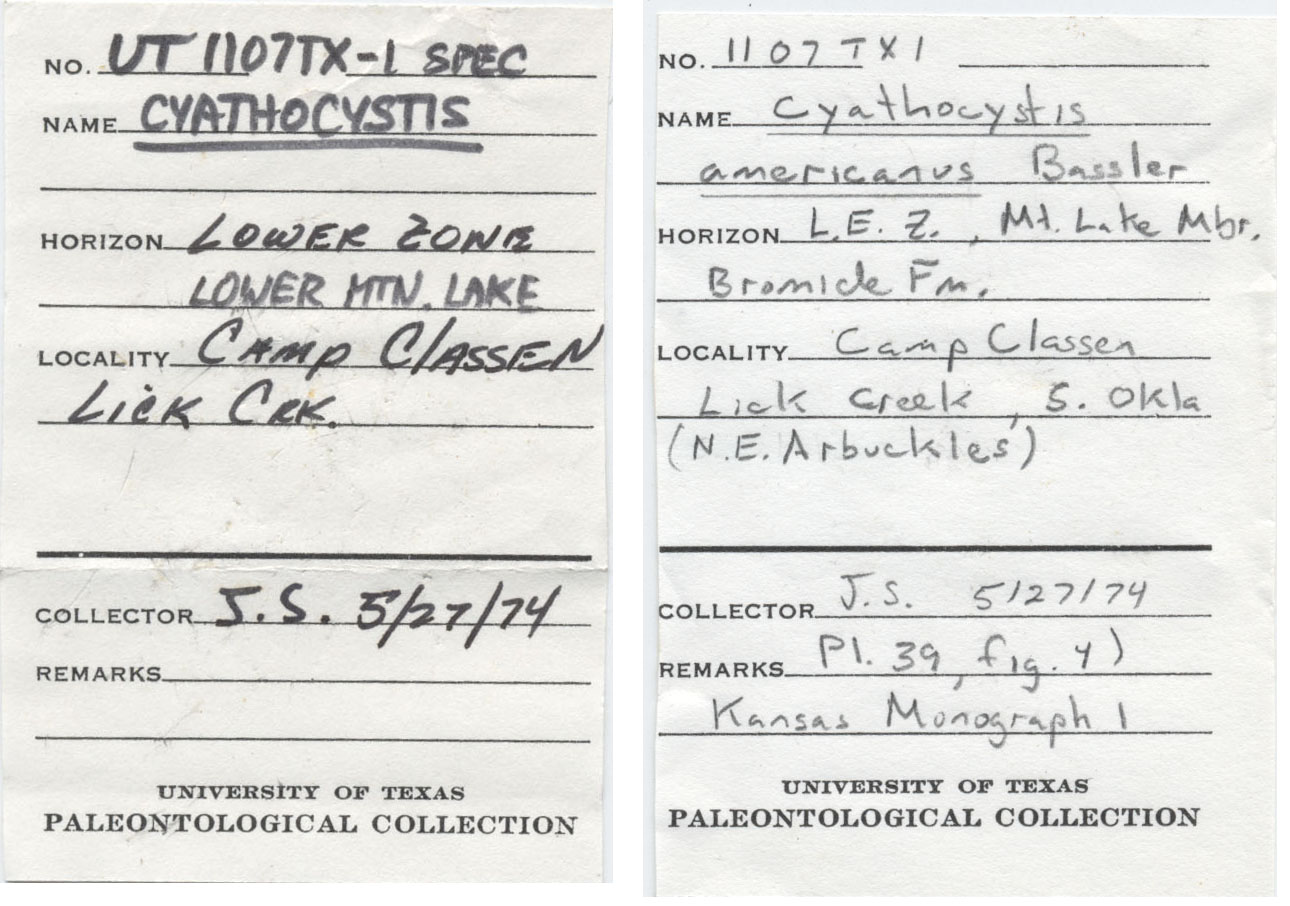 NO. UT 1107TX-1 SPEC
NAME CYATHOCYSTIS
HORIZON LOWER ZONE
LOWER MTN. LAKE
LOCALITY CAMP CLASSEN
LICK CRK.
COLLECTOR J.S. 5/27/74
REMARKS
UNIVERSITY OF TEXAS
PALEONTOLOGICAL COLLECTION
NO. 1107TX1
NAME Cyathocystis
americanus Bassler
HORIZON L.E.Z., Mt. Lake Mbr.
Bromide Fm.
LOCALITY Camp Classen
Lick Creek, S. Okla
(N.E. Arbuckles)
COLLECTOR J.S. 5/27/74
REMARKS Pl. 39, fig. 4)
Kansas Monograph 1
UNIVERSITY OF TEXAS
PALEONTOLOGICAL COLLECTION